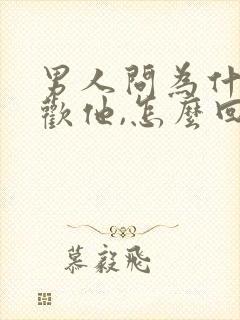 男人問為什
歡他,怎麼回
慕毅飛